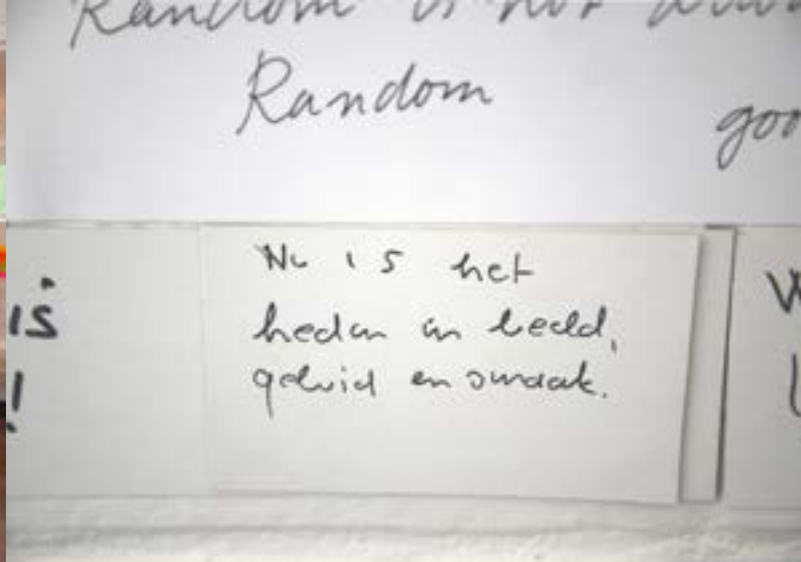 Random is not
Random
goo
is
!
Nu is het
heden in beeld,
geluid en smaak.
W